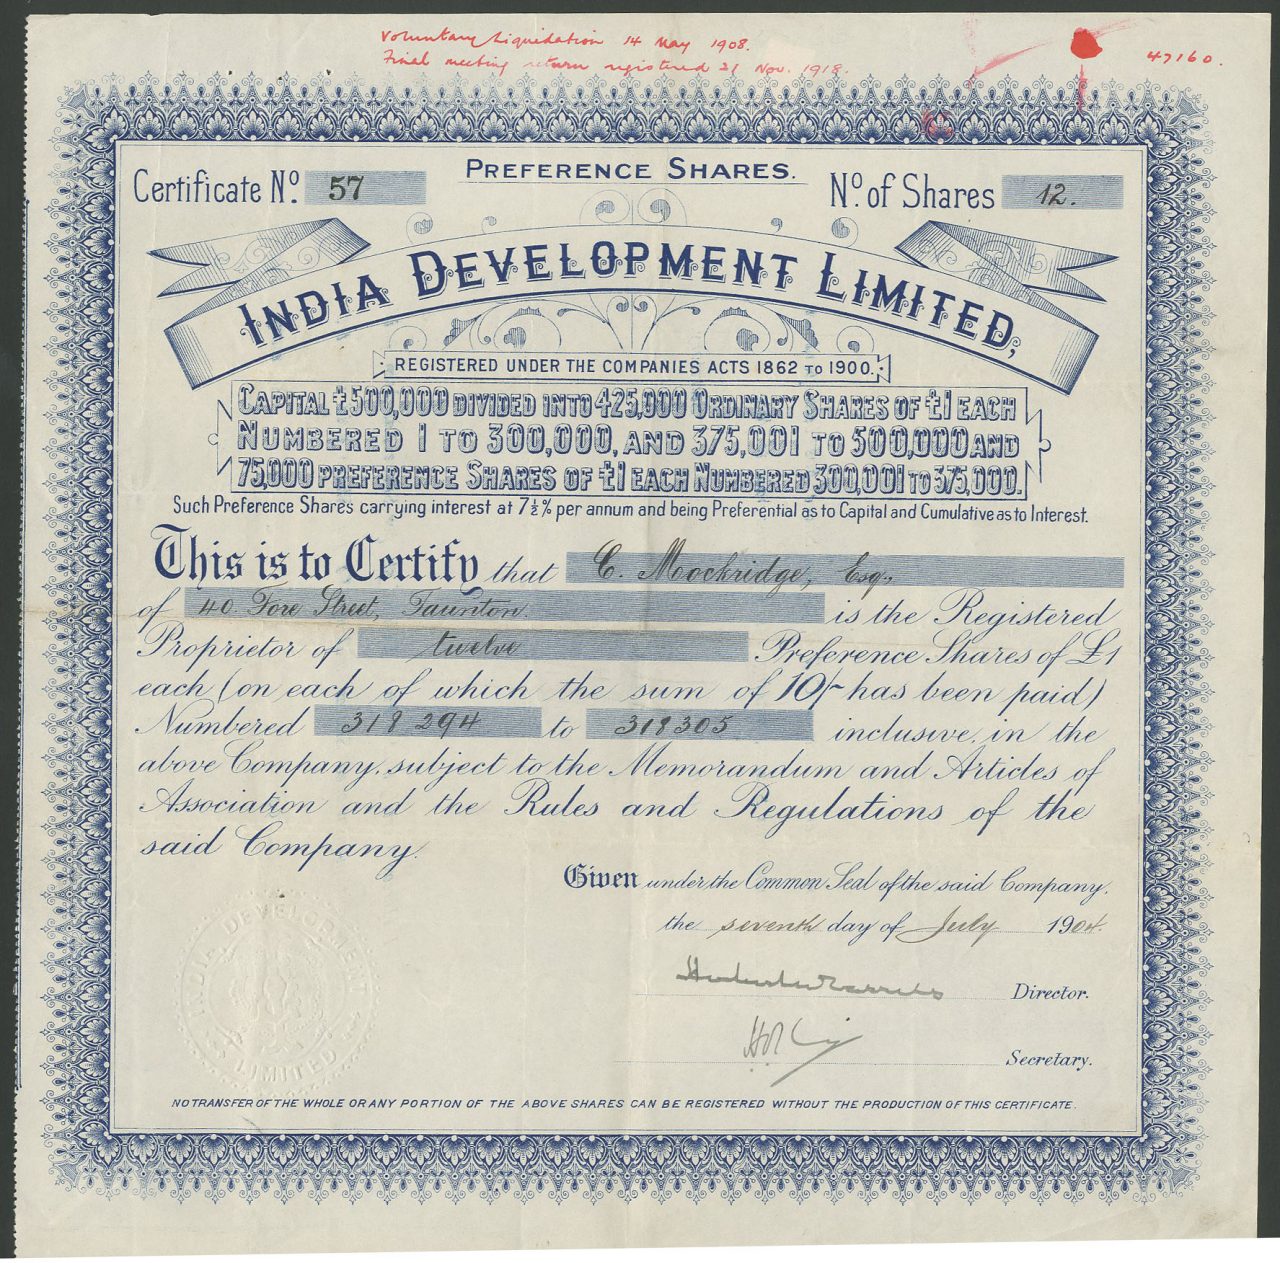 Voluntary Liquidation 14 May 1908.
Final meeting return registered 21 Nov. 1918.
47160.
PREFERENCE SHARES.
Certificate No. 57
No. of Shares 12.
INDIA DEVELOPMENT LIMITED,
REGISTERED UNDER THE COMPANIES ACTS 1862 TO 1900.
CAPITAL £500,000 DIVIDED INTO 425,000 ORDINARY SHARES OF £1 EACH
NUMBERED 1 TO 300,000, AND 375,001 TO 500,000 AND
75,000 PREFERENCE SHARES OF £1 EACH NUMBERED 300,001 TO 375,000.
Such Preference Shares carrying interest at 7½% per annum and being Preferential as to Capital and Cumulative as to Interest.
This is to Certify that C. Mockridge, Esq.,
of 40 Fore Street, Taunton. is the Registered
Proprietor of twelve Preference Shares of £1
each (on each of which the sum of 10/- has been paid)
Numbered 318294 to 318305 inclusive, in the
above Company, subject to the Memorandum and Articles of
Association and the Rules and Regulations of the
said Company.
Given under the Common Seal of the said Company,
the seventh day of July 1904.
Director.
Secretary.
INDIA DEVELOPMENT
LIMITED
NO TRANSFER OF THE WHOLE OR ANY PORTION OF THE ABOVE SHARES CAN BE REGISTERED WITHOUT THE PRODUCTION OF THIS CERTIFICATE.